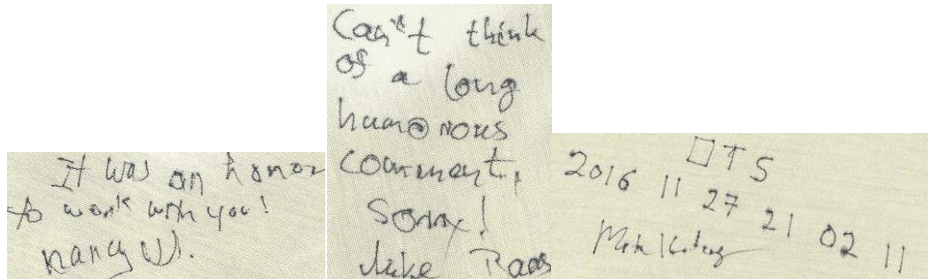 It was an honor
to work with you!
Nancy W.
Can't think
of a long
humorous
comment,
Sorry!
Jake
□TS
2016 11 27 21 02 11